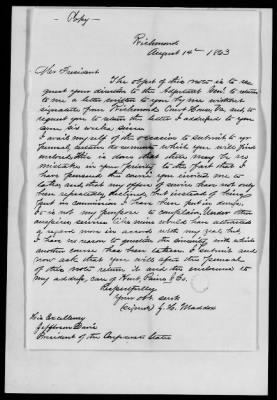 - Copy -
Richmond
August 14th 1863
Mr President
The object of this note is to re
quest you direction to the Adjutant Genl. to return
to me a letter written to you by me without
signature from Richmond Court House Va. and to
request you to return the letter I addressed to you
some six weeks since.
I avail myself of this occasion to submit to yr
perusal which you will find
enclosed this is done that there may be no
mistake in your to the fact that I
have pursued the course you invited me to
take, and that my offers of service have not only
been repeatedly declined, but instead of being
put in commission I have been put in
It is not my purpose to complain. Under other
auspices service like mine would have attracted
a regard more in accord with my zeal but,
I have no reason to question the sincerity with which
another course has been taken. I submit and
now ask that you will after the perusal
of this note return it and the enclosure to
my address, care of Kent, Paine & Co.
Respectfully
Your obt. servt.
(signed) J. H. Maddox
His Excellency
Jefferson Davis
President of the Confederate States